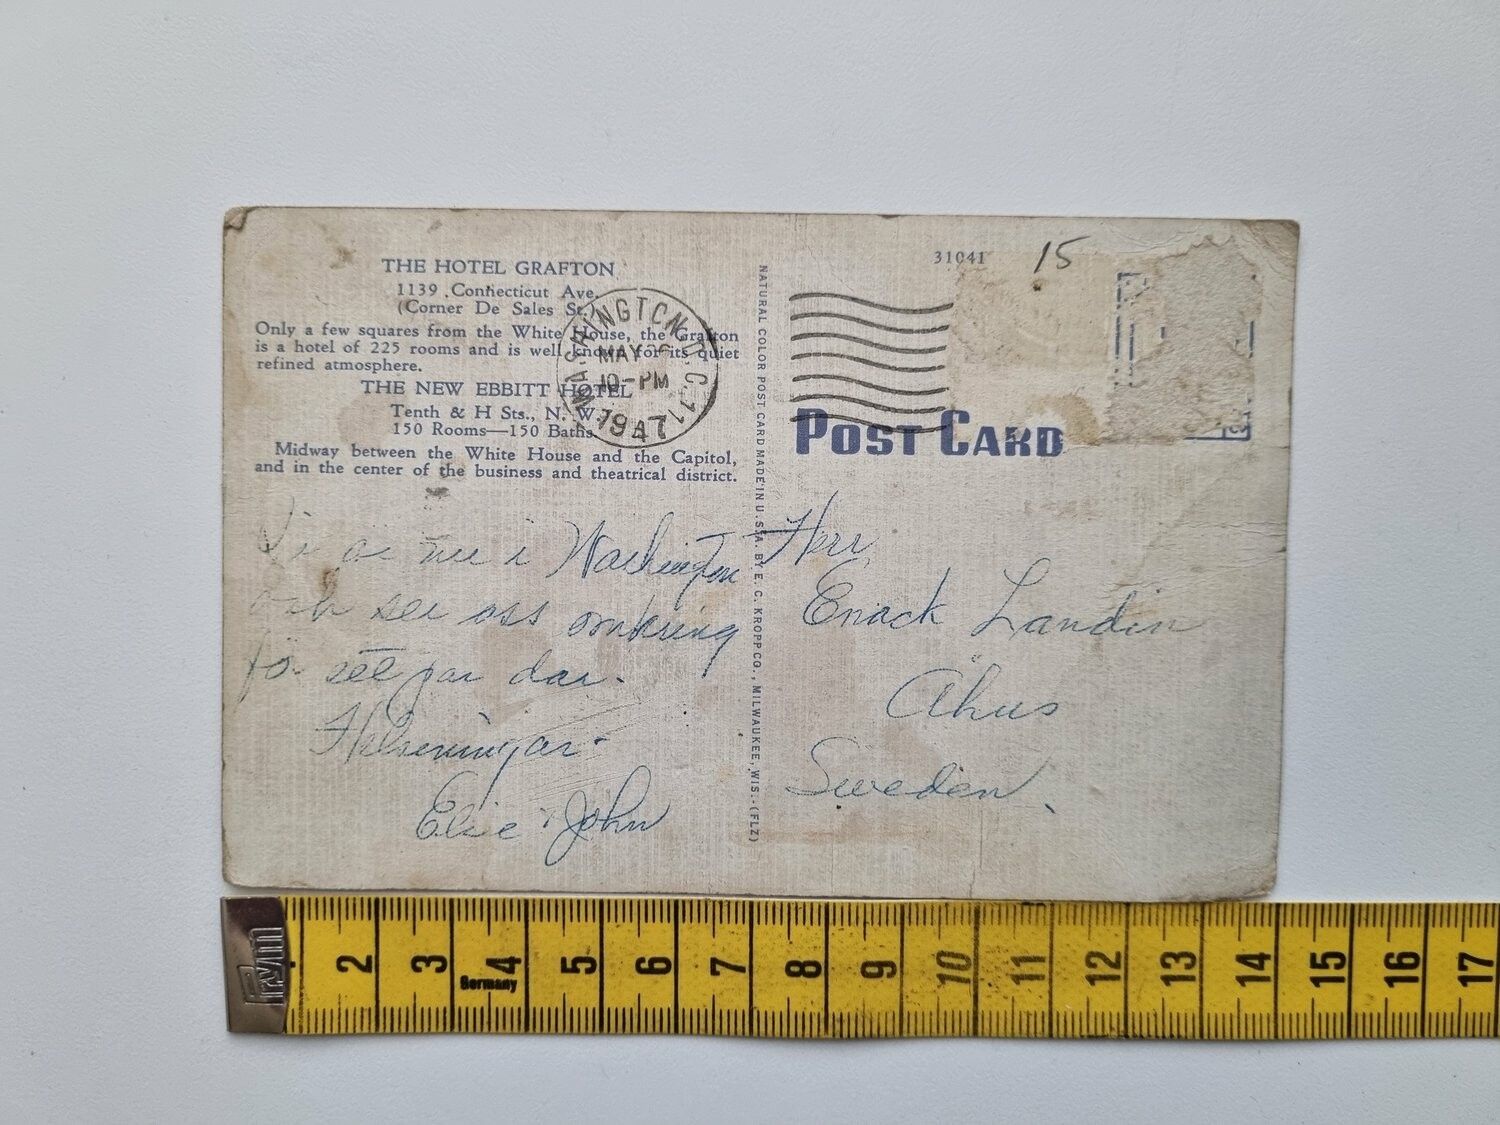 THE HOTEL GRAFTON
1139 Connecticut Ave.
(Corner De Sales St.)
Only a few squares from the White House, the Grafton
is a hotel of 225 rooms and is well known for its quiet
refined atmosphere.
THE NEW EBBITT HOTEL
Tenth & H Sts., N. W.
150 Rooms—150 Baths
Midway between the White House and the Capitol,
and in the center of the business and theatrical district.
WASHINGTON, D.C. 11
MAY
10-PM
1947
Vi är nu i Washington
och ser oss omkring
för ett par dar.
Helsningar
Elsie & John
NATURAL COLOR POST CARD MADE IN U.S.A. BY E. C. KROPP CO., MILWAUKEE, WIS.-(FLZ)
31041
15
POST CARD
Herr
Enock Landin
Åhus
Sweden
Prym
Germany
2 3 4 5 6 7 8 9 10 11 12 13 14 15 16 17